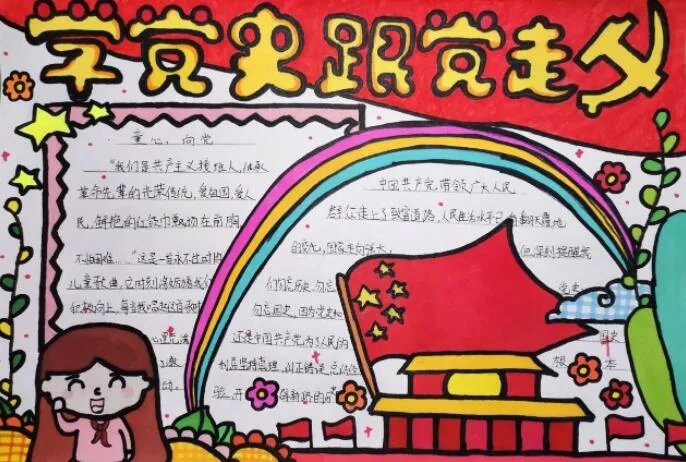 学党史跟党走
童心向党
"我们是共产主义接班人,继承
革命先辈的光荣传统,爱祖国,爱人
民,鲜艳的红领巾飘扬在前胸
不怕困难
儿童歌曲,它时刻
积极向上,每当我唱起这首歌时
中国共产党带领广大人民
群众走上了致富道路,人民生活水平已有翻天覆地
的变化,国家走向强大。但深刻提醒我
们勿忘历史,勿忘 党史
勿忘国史,因为党史和 国史
还是中国共产党为了人民的 根本
利益坚持真理,纠正错误,总结经
验,开